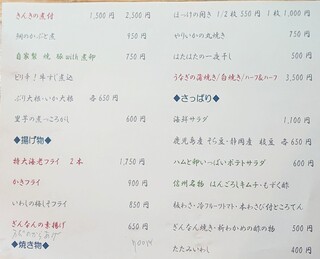 きんきの煮付 1,500 円 2,500 円
鯛のかぶと煮 950 円
自家製 焼 豚 with 煮卵 750 円
ピリ辛!牛すじ煮込 円
ぶり大根・いか大根 各 650 円
里芋の煮っころがし 600 円
◆揚げ物◆
特大海老フライ 2本 1,750 円
かきフライ 900 円
いわしの梅しそフライ 850 円
ぎんなんの素揚げ 650 円
◆焼き物◆
ほっけの開き 1/2枚 550円 1枚 1,000 円
やりいかの丸焼き 750 円
はたはたの一夜干し 500 円
うなぎの蒲焼き/白焼き/ハーフ&ハーフ 3,500 円
◆さっぱり◆
海鮮サラダ 1,100 円
鹿児島産 そら豆・静岡産 枝豆 各 650 円
ハムと卵いっぱいポテトサラダ 600 円
信州名物 はんごろしキムチ・もずく酢
板わさ・冷フルーツトマト・本わさび付ところてん
ぎんなん焼き・新わかめの酢の物 500 円
たたみいわし 400 円